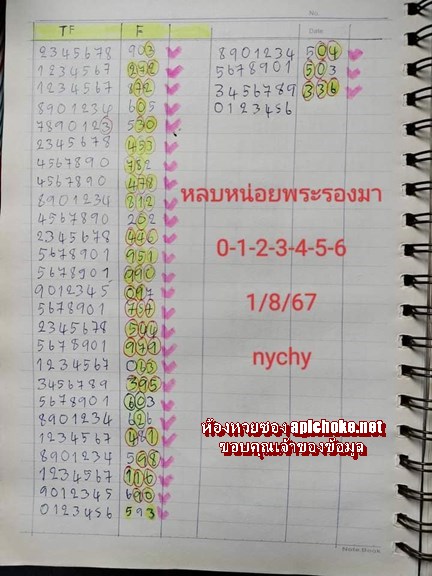 No.
Date
TF F
2345678 903
1234567 272
1234567 872
8901234 605
7890123 530
2345678 453
4567890 782
4567890 478
8901234 812
4567890 262
2345678 446
5678901 951
5678901 990
9012345 097
5678901 767
2345678 504
5678901 971
1234567 063
3456789 395
5678901 603
8901234 626
1234567 481
8901234 598
1234567 116
9012345 690
0123456 593
8901234 504
5678901 503
3456789 336
0123456
หลบหน่อยพระรองมา
0-1-2-3-4-5-6
1/8/67
nychy
ห้องหวยซอง apichoke.net
ขอบคุณเจ้าของข้อมูล